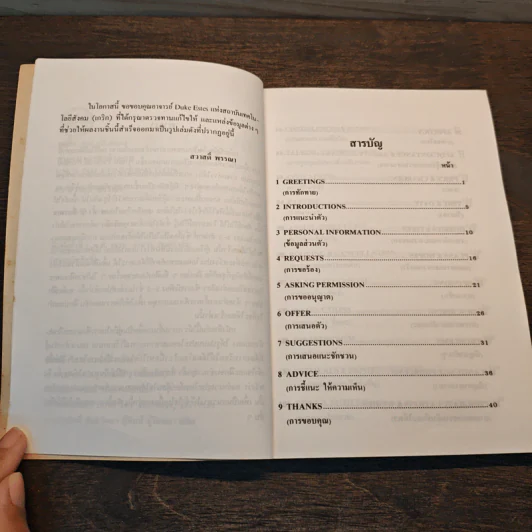 ในโอกาสนี้ ขอขอบคุณอาจารย์ Duke Estes แห่งสถาบันเทคโน-
โลยีสังคม (เกริก) ที่ได้กรุณาตรวจทานแก้ไขให้ และแหล่งข้อมูลต่าง ๆ
ที่ช่วยให้ผลงานชิ้นนี้สำเร็จออกมาเป็นรูปเล่มดังที่ปรากฏอยู่นี้
สวาสดิ์ พรรณา
สารบัญ
หน้า
1 GREETINGS 1
(การทักทาย)
2 INTRODUCTIONS 5
(การแนะนำตัว)
3 PERSONAL INFORMATION 10
(ข้อมูลส่วนตัว)
4 REQUESTS 16
(การขอร้อง)
5 ASKING PERMISSION 21
(การขออนุญาต)
6 OFFER 26
(การเสนอตัว)
7 SUGGESTIONS 31
(การเสนอแนะชักชวน)
8 ADVICE 36
(การชี้แนะ ให้ความเห็น)
9 THANKS 40
(การขอบคุณ)